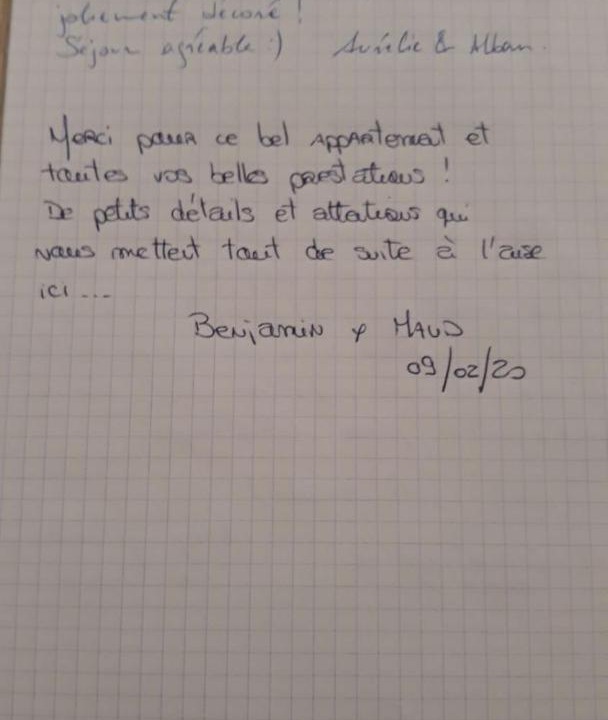 joliement décoré !
Séjour agréable :) Aurélie & Alban.
Merci pour ce bel appartement et
toutes vos belles prestations !
De petits détails et attentions qui
nous mettent tout de suite à l'aise
ici ...
Benjamin & MAUD
09/02/20